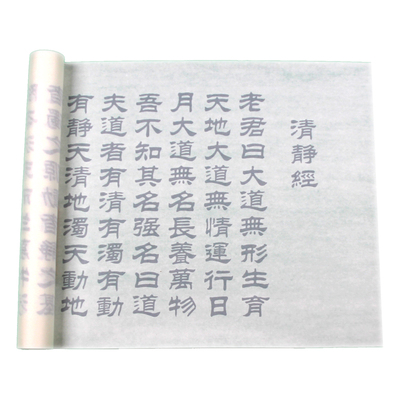 清靜經
老君曰大道無形生育
天地大道無情運行日
月大道無名長養萬物
吾不知其名强名曰道
夫道者有清有濁有動
有靜天清地濁天動地